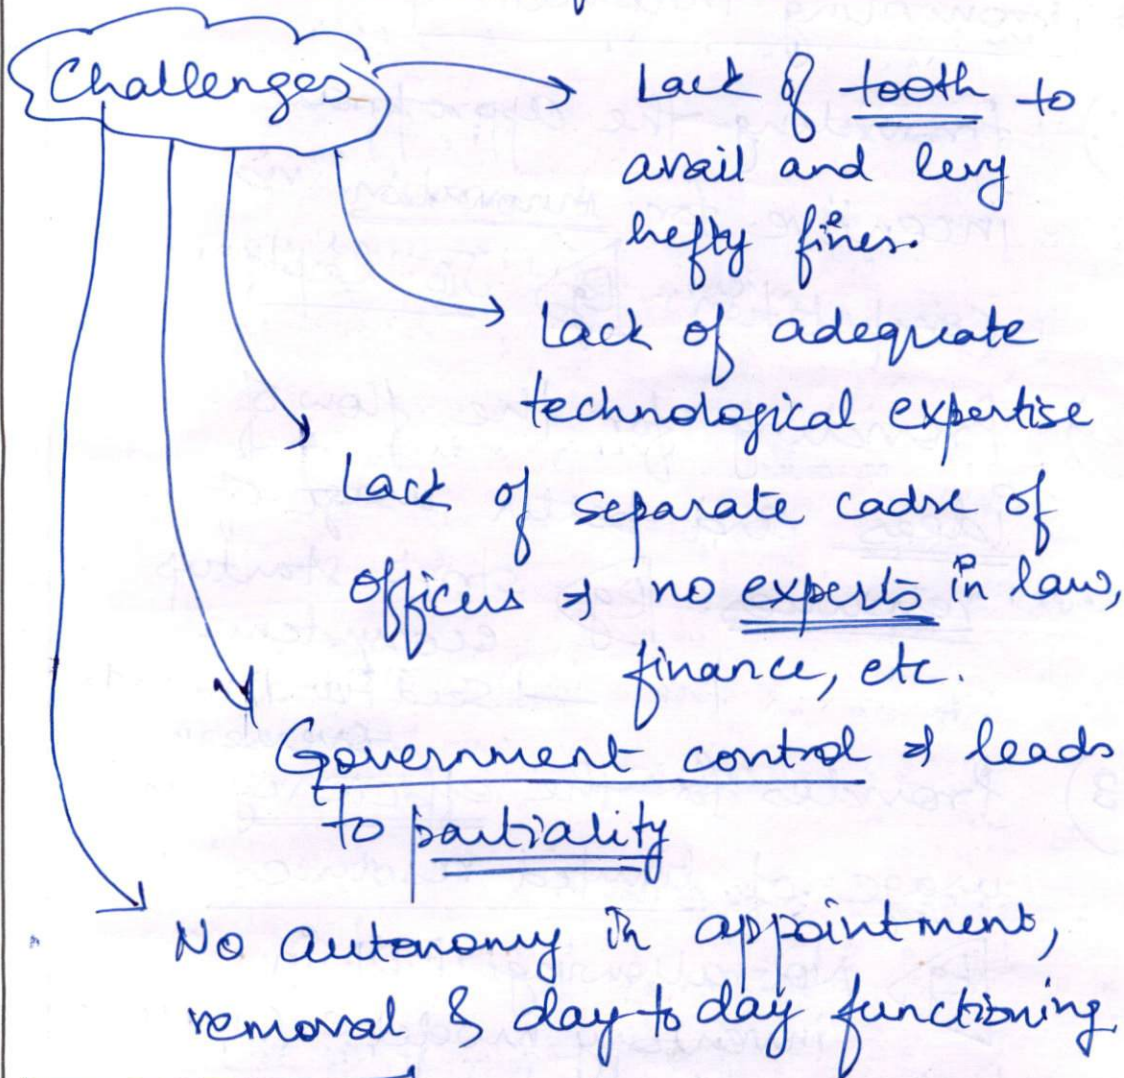 Challenges
Lack of tooth to
avail and levy
hefty fines.
Lack of adequate
technological expertise
Lack of separate cadre of
officers & no experts in law,
finance, etc.
Government control & leads
to partiality
No autonomy in appointment,
removal & day to day functioning